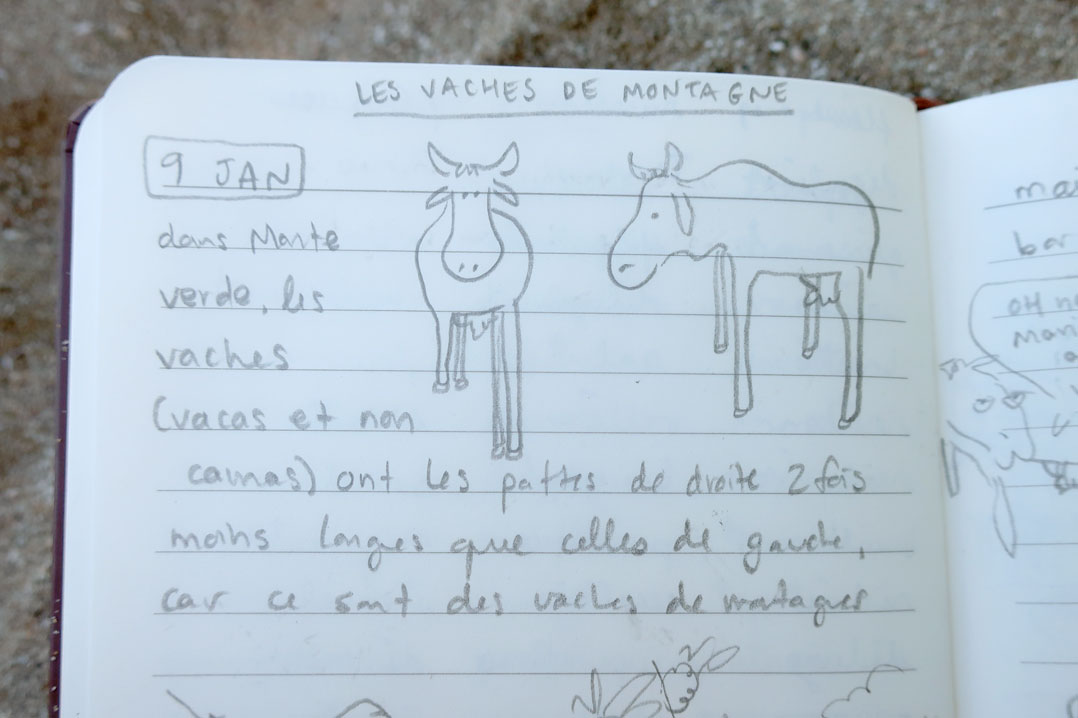 LES VACHES DE MONTAGNE
9 JAN
dans Monte
verde, les
vaches
(vacas et non
camas) ont les pattes de droite 2 fois
moins longues que celles de gauche,
car ce sont des vaches de montagnes
mai
bar
OH n
man